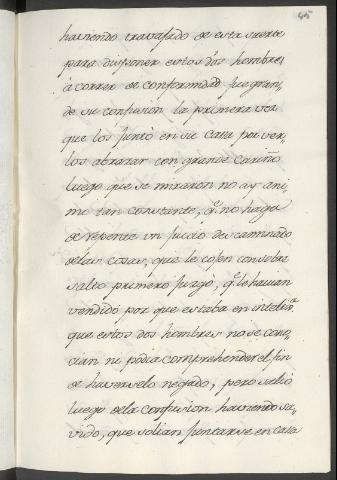 45
haviendo travajado de esta suerte
para disponer estos dos hombres
à correr de conformidad fue gran,
de su confusion la primera vez
que los juntò en su casa por ver,
los abrazar con grande cariño
luego que se miraron no ay ani,
mo tan constante, q̃. no haga
de repente un juicio descaminado
de las cosas, que le cojen con sobre
salto primero juzgò, q̃. le havian
vendido por que estaba en intelix.ª
que estos dos hombres no se cono,
cian ni podia comprehender el fin
de haverselo negado; pero saliò
luego de la confusion haviendo sa,
vido, que solian juntarse en casa